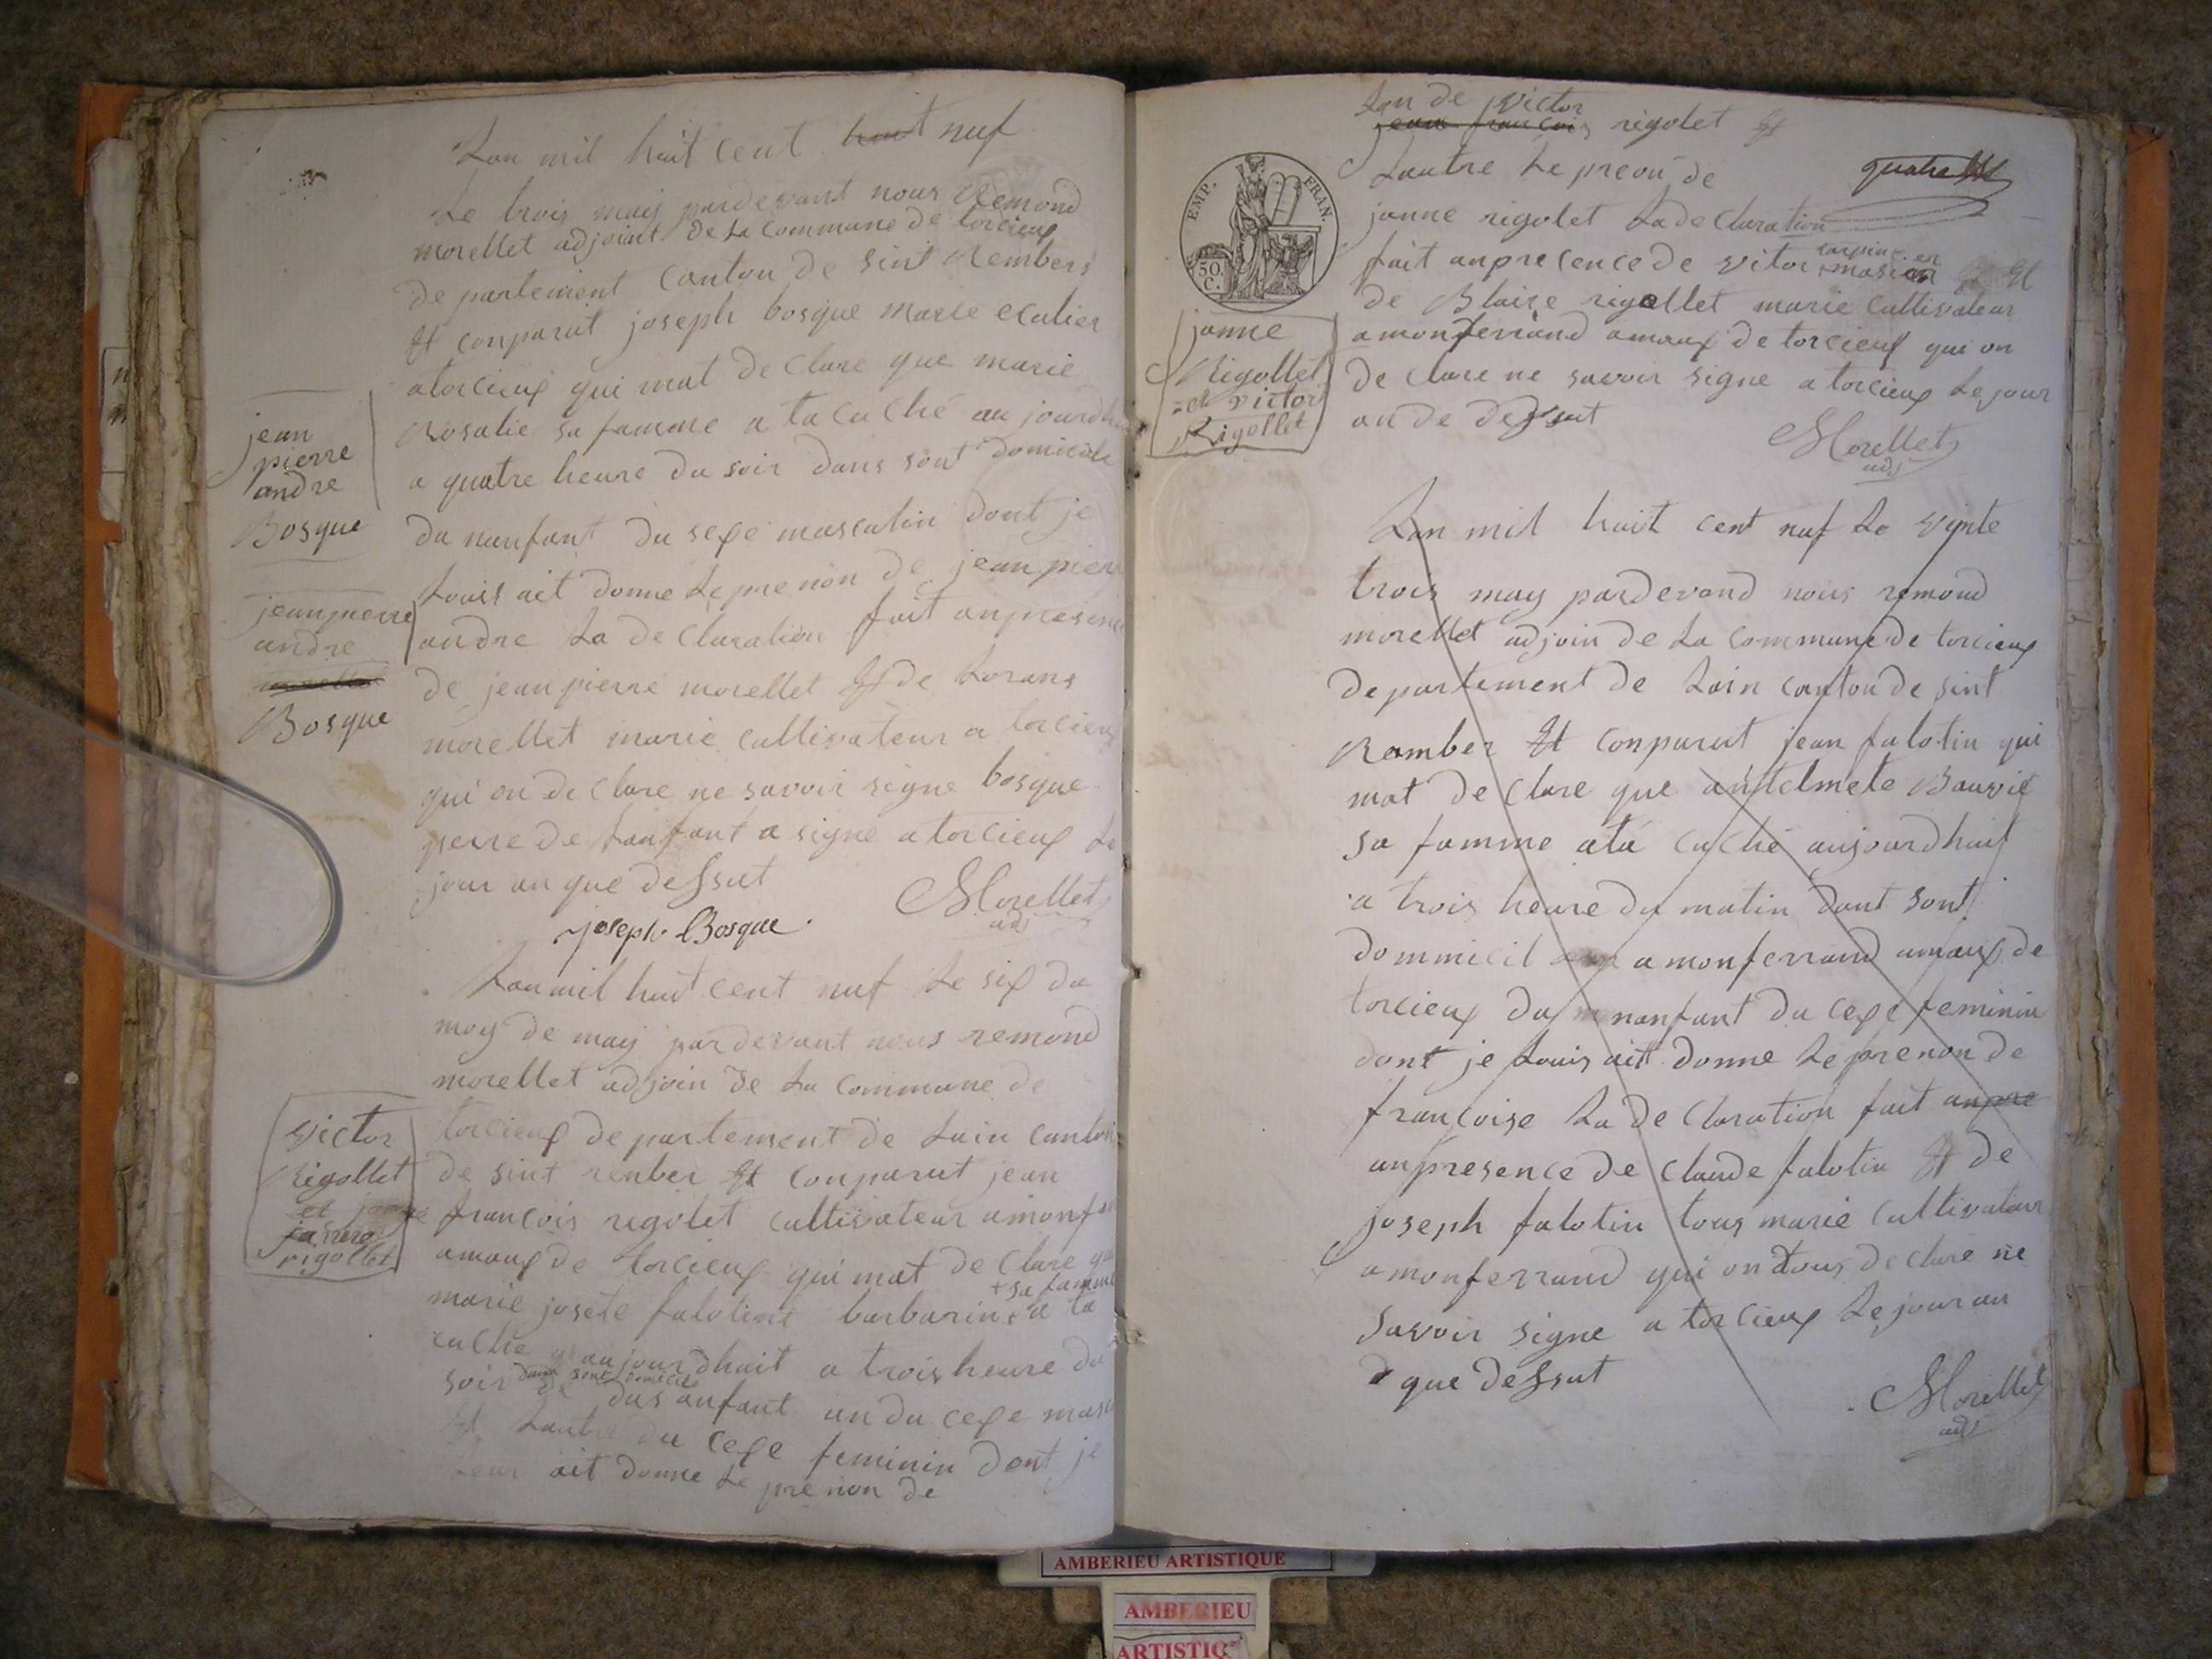 Lan mil huit cent huit nuf
Le trois may pardevant nous Remond
morellet adjoint de La Commune de torcieux
departement Canton de sint Rembers
Et conparut joseph bosque marie
atorcieux qui mat de Clare que marie
Rosalie sa famme a ta cuché au jourdh
a quatre heure du soir dans sont domicile
du nanfant du sexe masculin dont je
Louis ait donne Le pre non de jean pierr
andre La de Claration fait anpresence
de jean pierre morellet Et de Lorans
morellet marie cultivateur a torcieux
qui on de Clare ne savoir signe bosque
perre de Lanfant a signe a torcieux Le
jour an que dessut
Morellet
adj
joseph Bosque
jean
pierre
andre
Bosque
jeanpierre
andre
Bosque
Lan mil huit cent nuf Le six du
moy de may pardevant nous remond
morellet adjoin de La Commune de
torcieux departement de Lain canton
de sint renber Et conparut jean
francois rigolet cultivateur amonf
amaux de torcieux qui mat de Clare que
+ sa famme
marie josete falotint barbarin + a ta
cuche aujourdhuit a trois heure du
dans sont domicil
soir de dus anfant un du cexe masc
Et Lautre du cexe feminin dont je
Leur ait donne Le pre non de
Victor
Rigollet
et
janne
rigollet
Lun de victor
jean francois rigolet Et
Lautre Le preon de
janne rigolet La de Claration
quatre
EMP. FRAN.
50.
C.
fait anprecence de vitor masson Et
de Blaize rigollet marie cultivateur
amonferrand amaux de torcieux qui on
de Clare ne savoir signe a torcieux Le jour
an de dessut
Morellet
adj
janne
Rigollet
et victor
Rigollet
Lan mil huit cent nuf Le vinte
trois may pardevand nous remond
morellet adjoin de La Commune de torcieux
departement de Lain canton de sint
Ramber Et conparut jean falotin qui
mat de Clare que antelmete Bauvié
sa famme ata cuché aujourdhuit
a trois heure du matin dant sont
dommicil amonferrand amaux de
torcieux du nanfant du cexe feminin
dont je Louis ait donne Le prenon de
francoise La de Claration fait anpre
anpresence de claude falotin Et de
joseph falotin tous marie cultivateur
amonferrand qui on tous de clare ne
savoir signe a torcieux Le jour an
que dessut
Morellet
adj
AMBERIEU ARTISTIQUE
AMBERIEU
ARTISTIQ